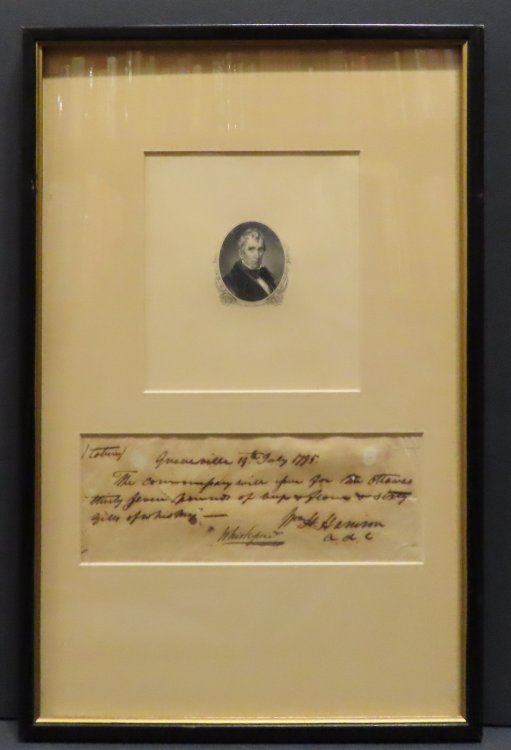 Greeneville 19th July 1795.
The commissary will issue for the Ottawas
thirty seven pounds of beef & flour & sixty
Gills of whiskey. —
Wm. H. Harrison
a d c